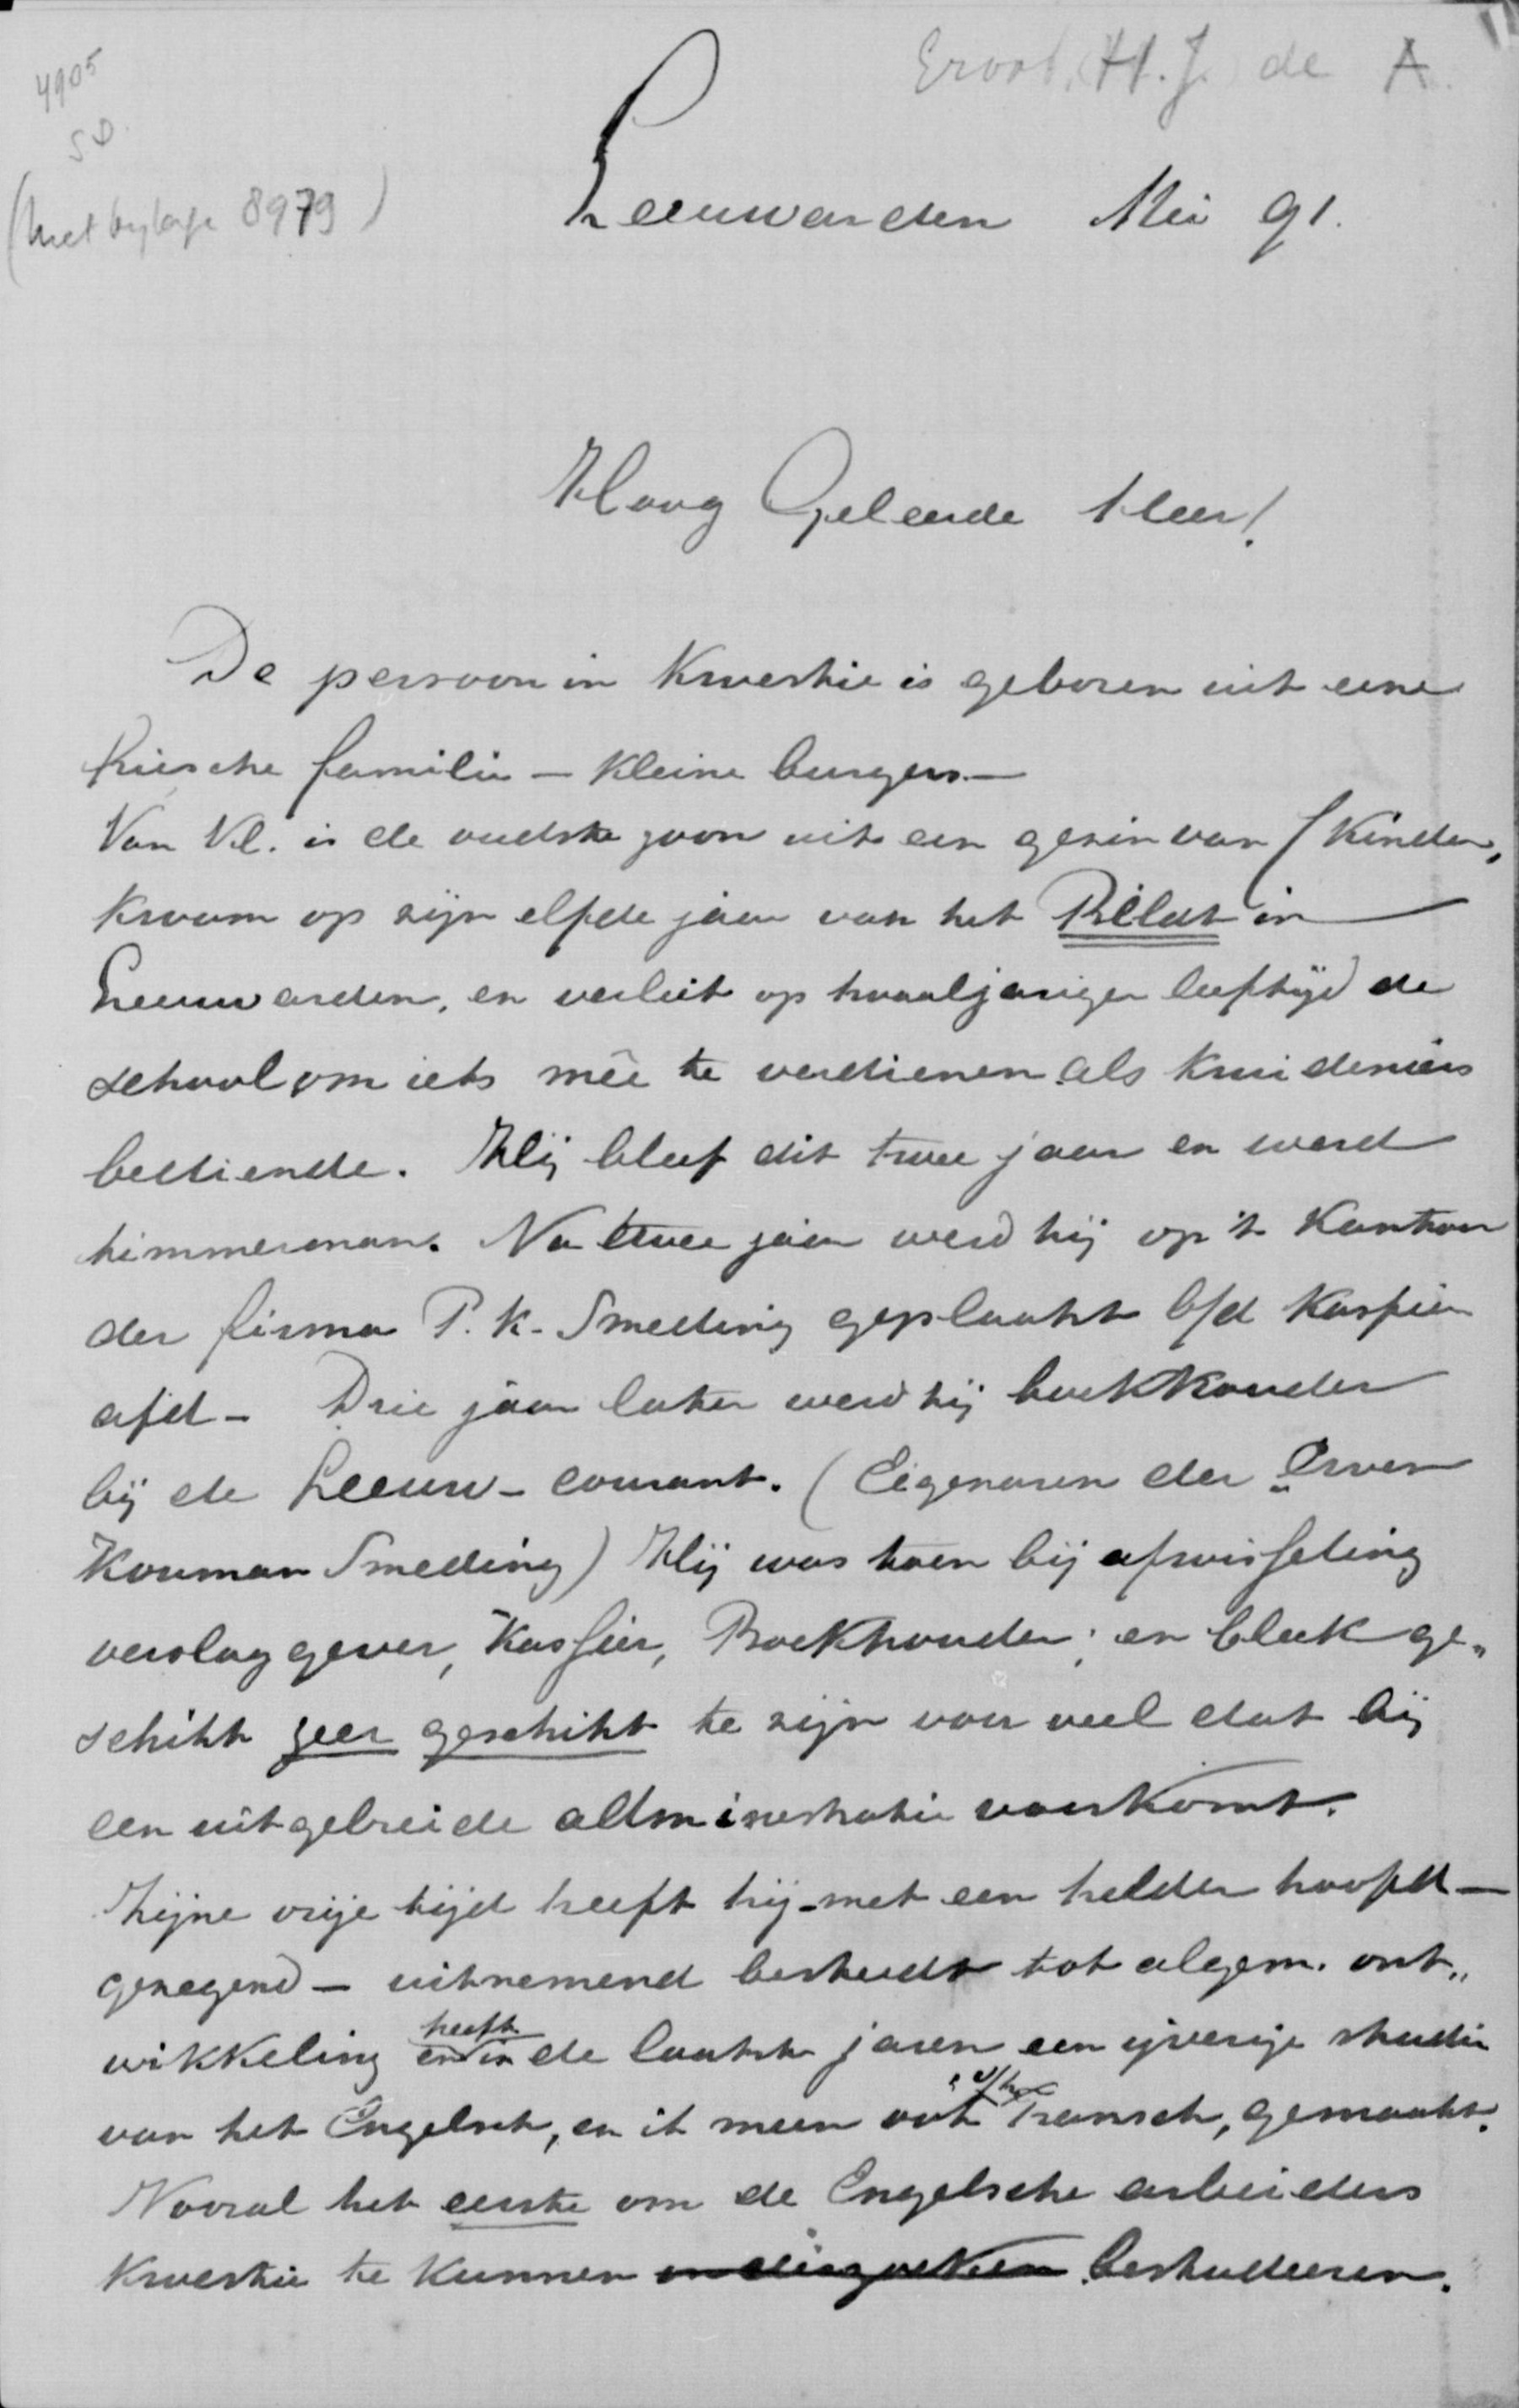 4905
SD
(Met bylage 8979)
Groot, (H. J. de A.
Leeuwarden Mei 91.
Hoog Geleerde Heer!
De persoon in kwestie is geboren uit eene
friesche familie — kleine burgers. —
Van Vl. is de oudste zoon uit een gezin van kinder,
kwam op zijn elfde jaar van het Bildt in
Leeuwarden, en verliet op twaaljariger leeftijd de
school om iets mêe te verdienen als kruideniers
bediende. Hij bleef dit twee jaar en werd
timmerman. Na twee jaar werd hij op 't Kantoor
der firma P. K. Smeding geplaatst b/d Kassier
afd - Drie jaar later werd hij boekhouder
bij de Leeuw - courant. (Eigenaren der Erven
Kouman Smeding) Hij was toen bij afwisseling
verslaggever, Kassier, Boekhouder; en bleek ge„
schikt zeer geschikt te zijn voor veel dat bij
een uitgebreide administratie voorkomt.
Zijne vrije tijd heeft hij - met een helder hoofd —
gezegend — uitnemend besteedt tot algem. ont„
wikkeling en in heeft de laatste jaren een ijverige studie
van het Engelsch, en ik meen ook v/h Fransch, gemaakt.
Vooral het eerste om de Engelsche arbeiders
kwestie te kunnen bestudeeren.